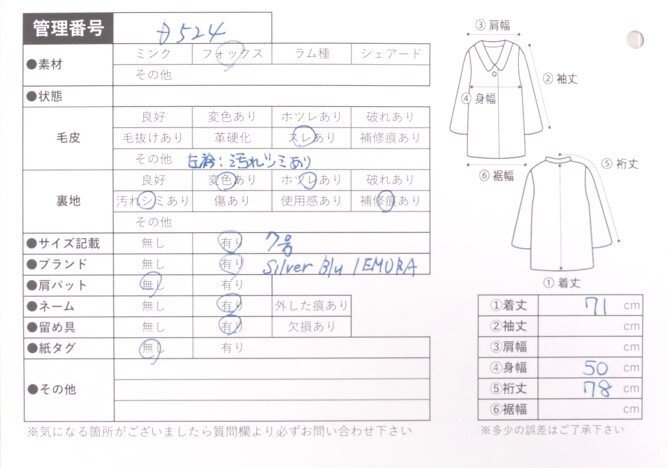 管理番号 D524
●素材 ミンク フォックス ラム種 シェアード
その他
●状態
毛皮 良好 変色あり ホツレあり 破れあり
毛抜けあり 革硬化 スレあり 補修痕あり
その他 左袖:汚れシミあり
裏地 良好 変色あり ホツレあり 破れあり
汚れシミあり 傷あり 使用感あり 補修痕あり
その他
●サイズ記載 無し 有り 7号
●ブランド 無し 有り Silver Blu / EMURA
●肩パット 無し 有り
●ネーム 無し 有り 外した痕あり
●留め具 無し 有り 欠損あり
●紙タグ 無し 有り
●その他
※気になる箇所がございましたら質問欄より必ずお問い合わせ下さい
③肩幅
②袖丈
④身幅
⑥裾幅
⑤裄丈
①着丈
①着丈 71 cm
②袖丈 cm
③肩幅 cm
④身幅 50 cm
⑤裄丈 78 cm
⑥裾幅 cm
※多少の誤差はご了承下さい